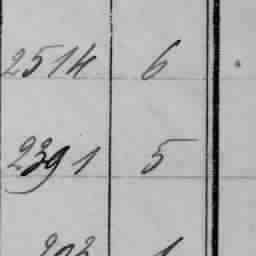 2514 6
2391 5